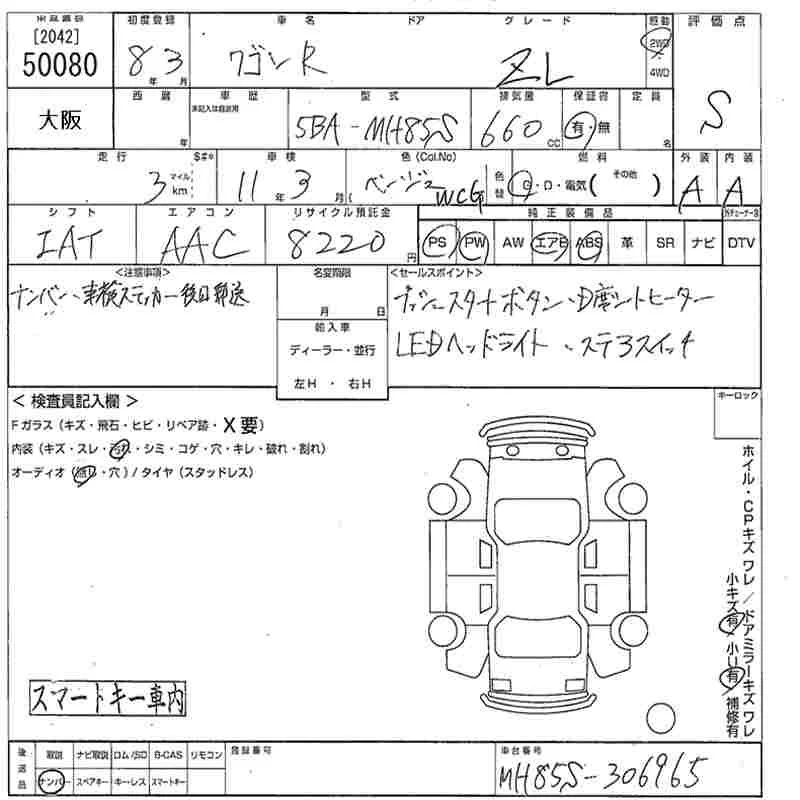 [2042]
50080
大阪
初度登録
8年3月
車名 ドア グレード
ワゴンR ZL
駆動
2WD
4WD
評価点
S
西暦
年
車歴
未記入は自家用
型式
5BA-MH85S
排気量
660 CC
保証書
有・無
定員
名
走行
3 マイル km
$#*
車検
11年3月(
色(Col.No)
ベージュ WCG
色替
燃料
G・D・電気( その他 )
外装
A
内装
A
シフト
IAT
エアコン
AAC
リサイクル預託金
8220円
純正装備品
PS PW AW エアB ABS 革 SR ナビ DTV
<注意事項>
ナンバー、車検ステッカー後日郵送
名変期限
月 日
輸入車
ディーラー・並行
左H ・ 右H
<セールスポイント>
プッシュスタートボタン、D席シートヒーター
LEDヘッドライト、ステ3スイッチ
キーロック
< 検査員記入欄 >
Fガラス(キズ・飛石・ヒビ・リペア跡・X要)
内装(キズ・スレ・汚れ・シミ・コゲ・穴・キレ・破れ・割れ)
オーディオ(無し・穴)/タイヤ(スタッドレス)
ホイル・CPキズ ワレ / ドアミラーキズ ワレ
小キズ有 / 小U有 / 補修有
スマートキー車内
後送品
取説 ナビ取説 ロム/SD B-CAS リモコン
ナンバー スペアキー キーレス スマートキー
登録番号
車台番号
MH85S-306965